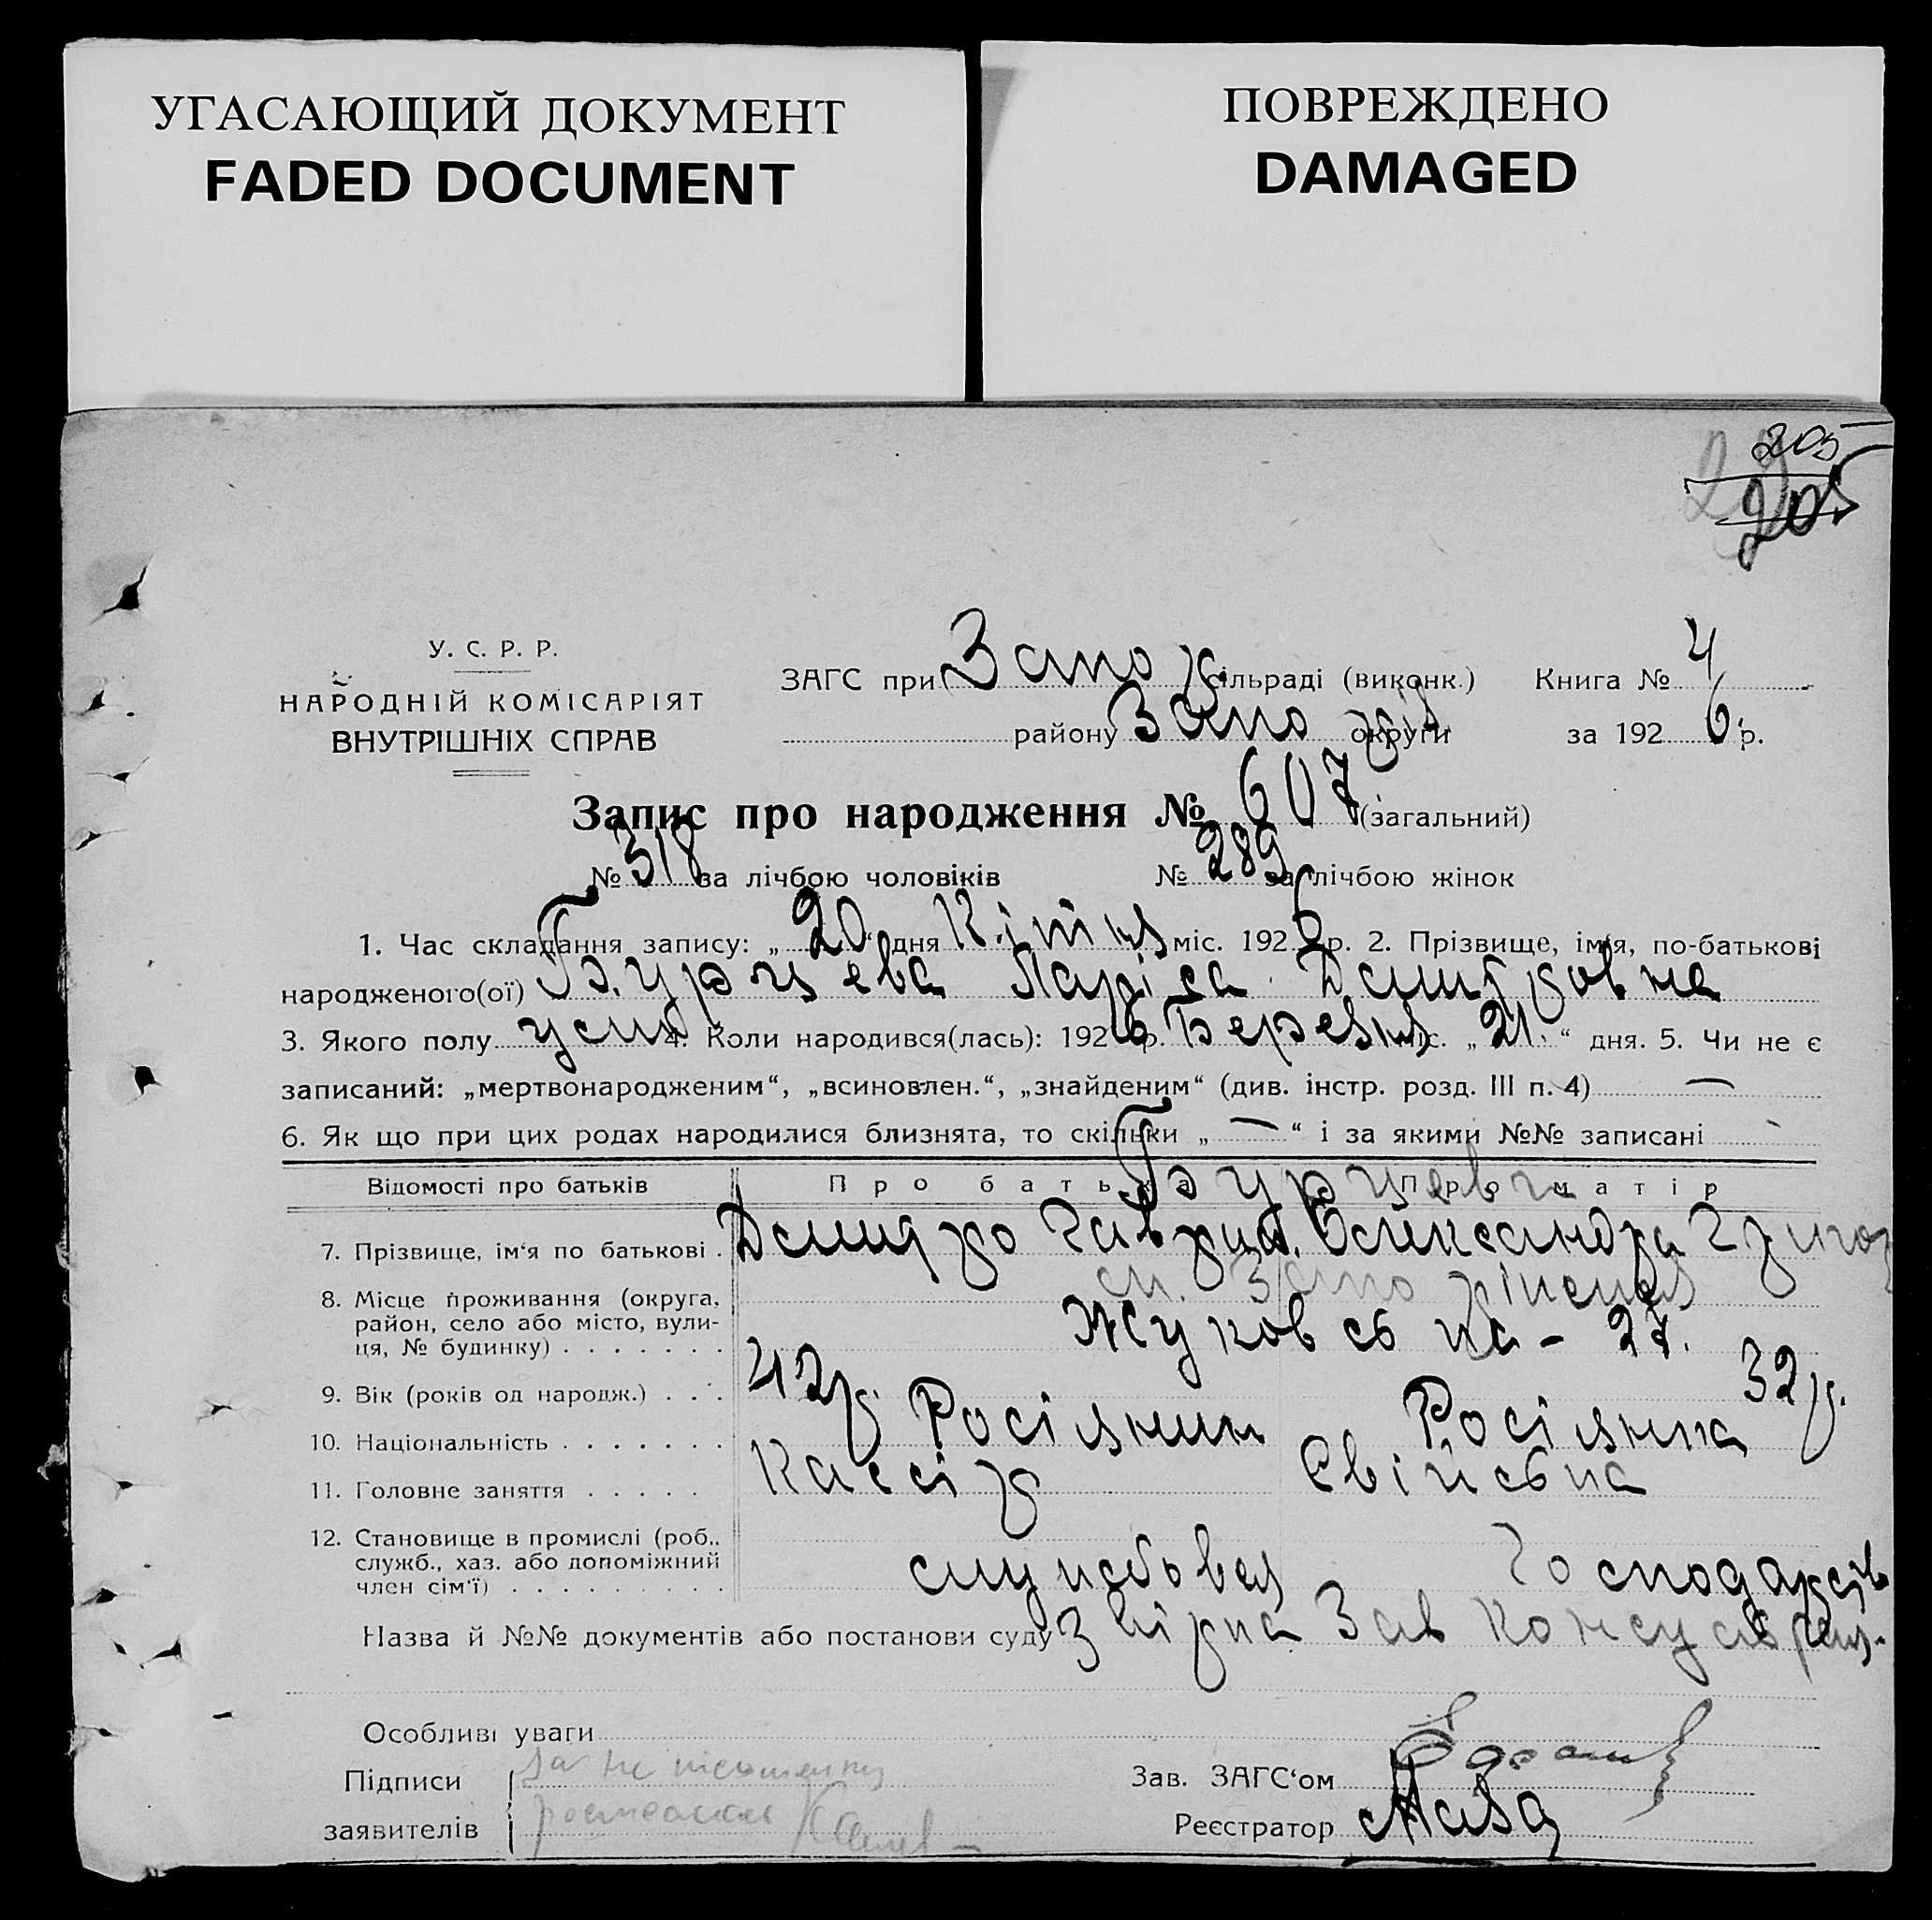 УГАСАЮЩИЙ ДОКУМЕНТ
FADED DOCUMENT
ПОВРЕЖДЕНО
DAMAGED
205
205
У. С. Р. Р.
НАРОДНІЙ КОМІСАРІЯТ
ВНУТРІШНІХ СПРАВ
ЗАГС при Запоріж сільраді (виконк.) Книга № 4
району Запоріж округи за 1926 р.
Запис про народження № 607 (загальний)
№ 318 за лічбою чоловіків № 289 за лічбою жінок
1. Час складання запису: „20“ дня Квітня міс. 1926 р. 2. Прізвище, ім'я, по-батькові
народженого(ої) Бурцева Ларіса Дмитровна
3. Якого полу жін 4. Коли народився(лась): 1926 р. Березня міс. „21“ дня. 5. Чи не є
записаний: „мертвонародженим“, „всиновлен.“, „знайденим“ (див. інстр. розд. III п. 4) —
6. Як що при цих родах народилися близнята, то скільки „—“ і за якими №№ записані
Відомості про батьків Про батька Про матір
Бурцеви
7. Прізвище, ім'я по батькові . Дмитро Гаврил. Олександра Григор
8. Місце проживання (округа, район, село або місто, вулиця, № будинку) . . . . . . .
м. Запоріжжя
Жуковська - 27.
9. Вік (років од народж.) . . . 42 р. 32 р.
10. Національність . . . . . . . Росіянин Росіянка
11. Головне заняття . . . . . Кассір
12. Становище в промислі (роб., служб., хаз. або допоміжний член сім'ї) . . . . . . . . . службовец Господарств
Назва й №№ документів або постанови суду Зав
Особливі уваги
Підписи
заявителів
Зав. ЗАГС'ом
Реєстратор